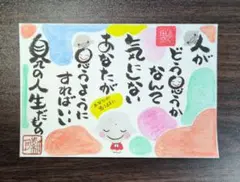 人が
どう思うか
なんて
気にしない
あなたが
思うように
すればいい
自分の人生だもの